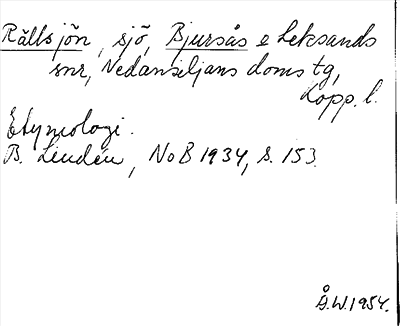 Rällsjön, sjö, Bjursås o Leksands
snr, Nedansiljans doms tg,
Kopp. l.
Etymologi.
B. Lindén, NoB 1934, s. 153.
Å.W. 1954.